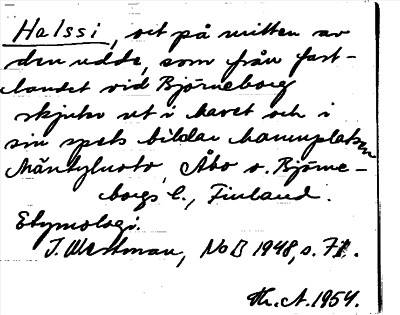 Halssi, ort på mitten av
den udde, som från fast-
landet vid Björneborg
skjuter ut i havet och i
sin spets bildar hamnplatsen
Mäntyluoto, Åbo o. Björne-
borgs l., Finland.
Etymologi.
T. Westman, NoB 1948, s. 71.
Th. A. 1954.